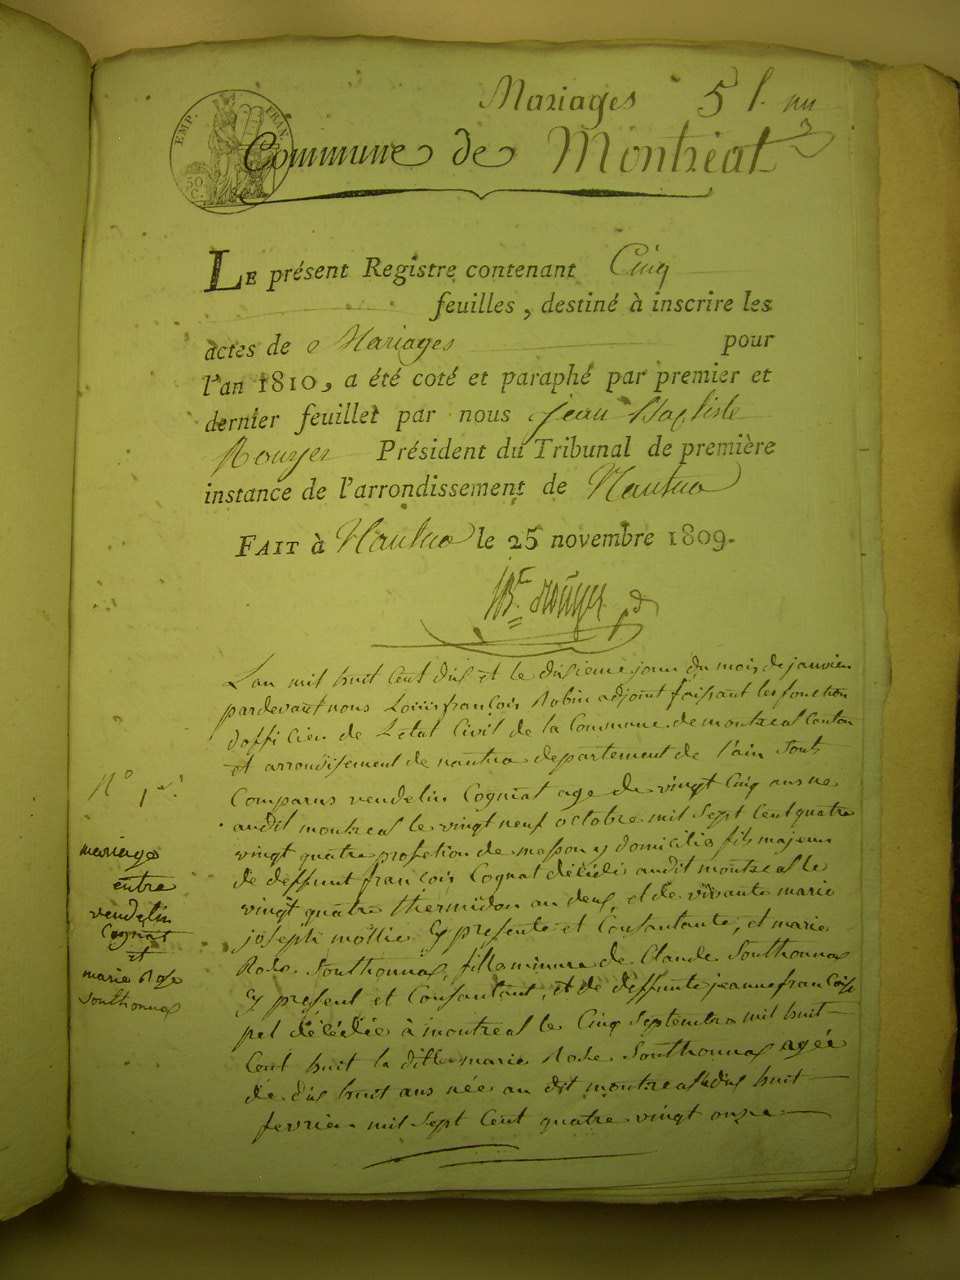 Mariages 5 f.
EMP. FRAN.
50 C.
Commune de Montreal
LE présent Registre contenant Cinq
feuilles, destiné à inscrire les
actes de Mariages pour
l'an 1810, a été coté et paraphé par premier et
dernier feuillet par nous Jean Baptiste
Rouyer Président du Tribunal de première
instance de l'arrondissement de Nantua
FAIT à Nantua le 25 novembre 1809.
JB.te Rouyer
L'an mil huit Cent dis et le disieme jour du mois de janvier
pardevant nous Louis françois Robin adjoint faisant les fonction
d'officier de L'etat Civil de la Commune de montreal Canton
et arrondisement de nantua departement de l'ain sont
Comparus vendelin Cogniat age de vingt Cinq ans ne
audit montreal le vingt neuf octobre mil sept Cent quatre
vingt quatre profetion de masson y domicilié fils majeur
de deffunt françois Cognat décédé audit montreal le
vingt quatre thermidon an deux, et de vivante marie
joseph mottie Cy presente et Consantante, et marie
Rose Southonnax, fille mineure de Claude Southonnax
Cy present et Consantant, et de deffunte jeanne françoise
pet décédée à montreal le Cinq septembre mil huit
Cent huit la ditte marie Rose Southonnax agée
de dis huit ans née au dit montreal le dis huit
fevrier mil sept Cent quatre vingt onze
N° 1er
mariage
entre
vendelin
Cognat
et
marie Rose
Southonnax